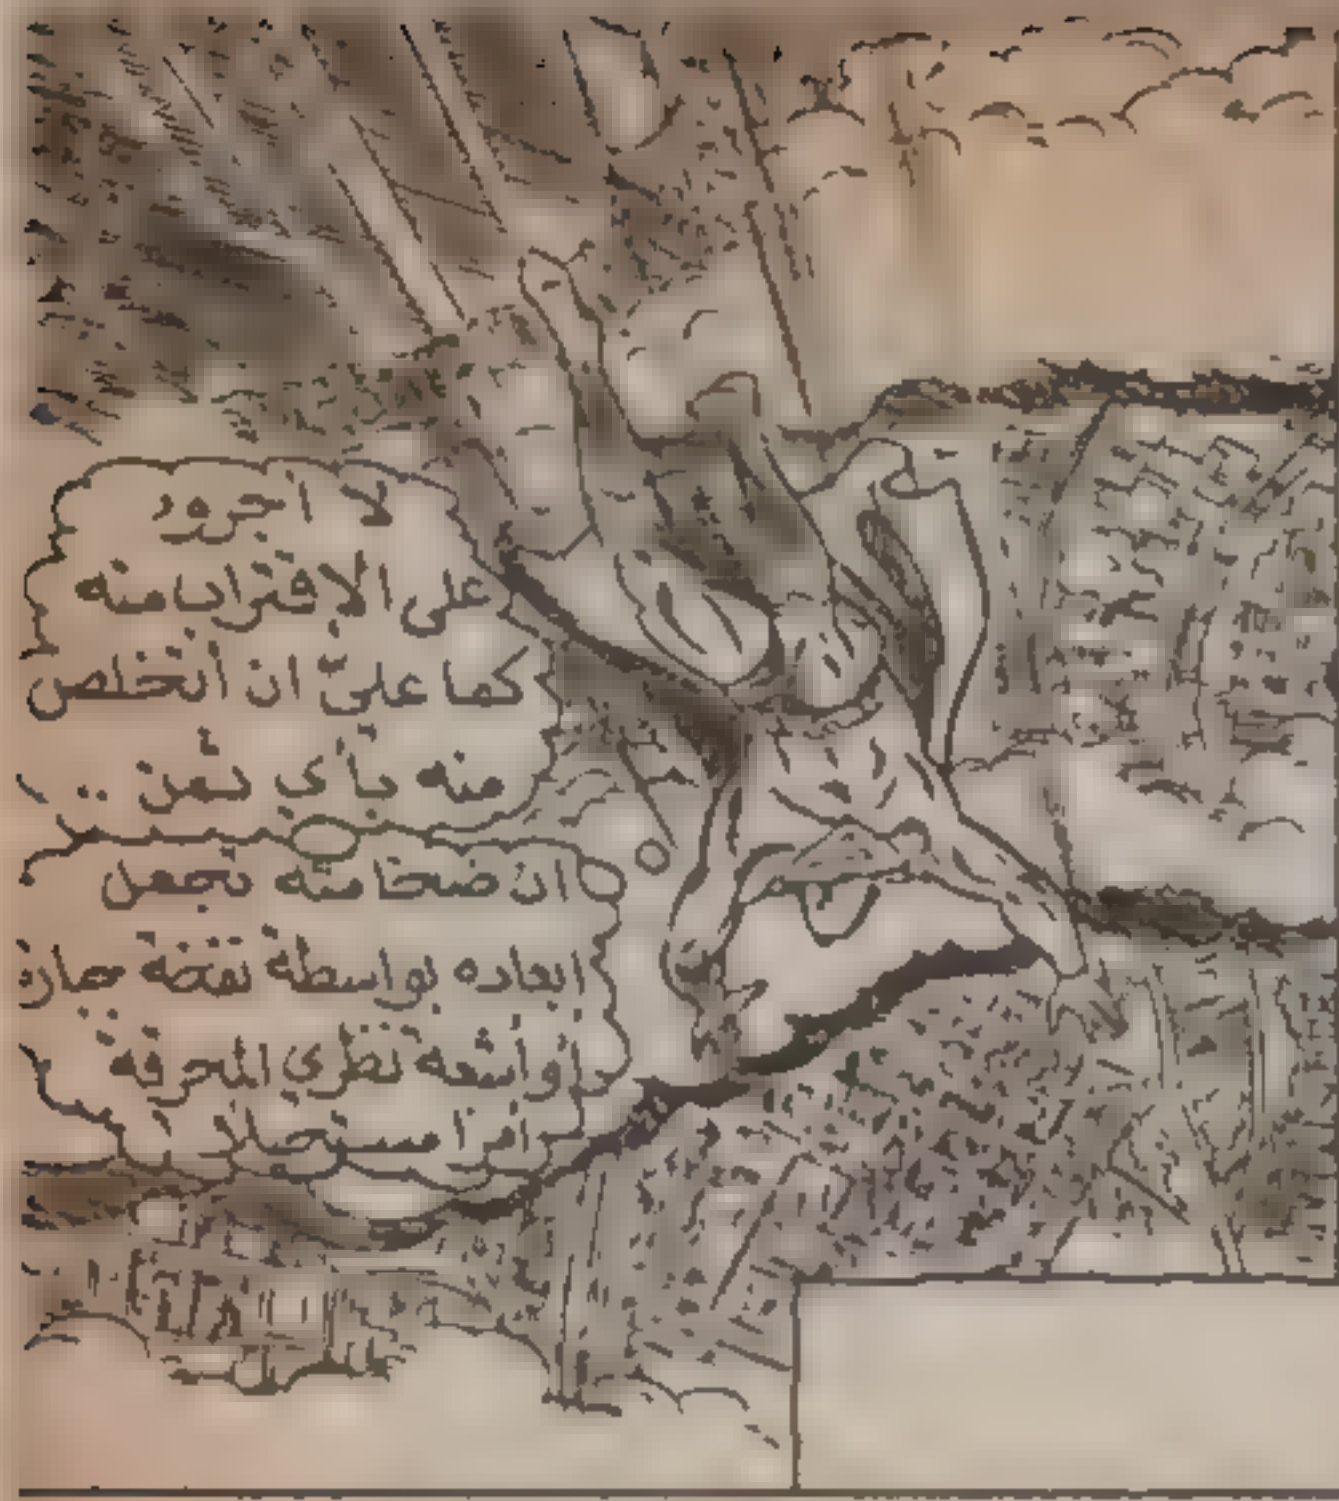 لا أجرؤ
على الاقتراب منه
كما عليّ ان أتخلص
منه بأي ثمن ..
ان ضخامته تجعل
ابعاده بواسطة نفخة
او أشعة نظري المحرقة
امرا مستحيلا